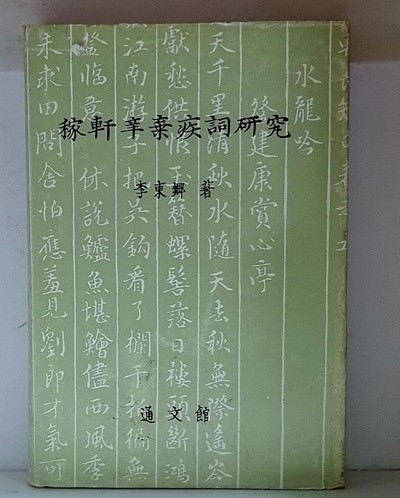 稼軒辛棄疾詞研究
李東鄕 著
通文館
水龍吟
登建康賞心亭
天千里清秋水隨天去秋無際遙岑
獻愁供恨玉簪螺髻落日樓頭斷鴻
江南游子把吳鉤看了欄干拍徧無
登臨意休說鱸魚堪鱠儘西風季
未求田問舍怕應羞見劉郎才氣可